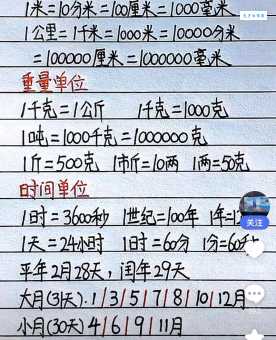 1米=10分米=100厘米=1000毫米
1公里=1千米=1000米=10000分米
=100000厘米=1000000毫米
重量单位
1千克=1公斤 1千克=1000克
1吨=1000千克=1000000克
1斤=500克 1市斤=10两 1两=50克
时间单位
1时=3600秒 1世纪=100年 1年=12
关注
1天=24小时 1时=60分 1分=60秒
平年2月28天，闰年29天
大月(31天).1/3/5/7/8/10/12月
小月(30天)4/6/9/11月